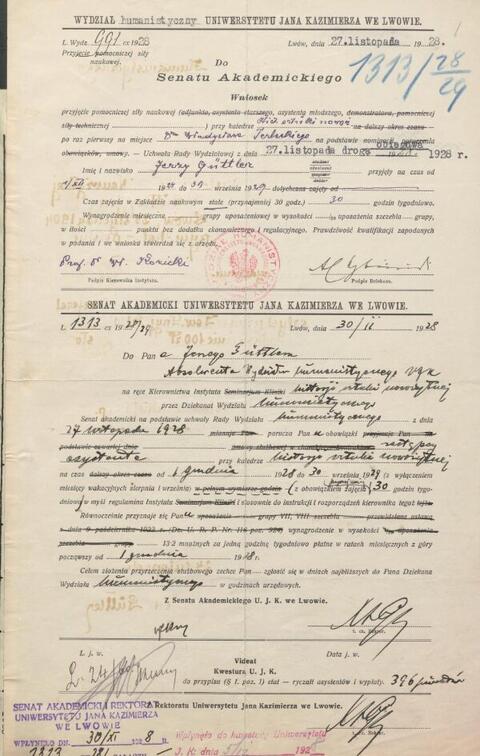 WYDZIAŁ humanistyczny UNIWERSYTETU JANA KAZIMIERZA WE LWOWIE.
L. Wydz. 991 ex 1928 Lwów, dnia 27.listopada 1928.
Przyjęcie pomocniczej siły naukowej.
1313/28/29
Do
Senatu Akademickiego
Wniosek
przyjęcie pomocniczej siły naukowej (adjunkta, asystenta starszego, asystenta młodszego, demonstratora, pomocniczej
siły technicznej) przy katedrze Hist. sztuki nowoż. na dalszy okres czasu
po raz pierwszy na miejsce Dra Władysława na podstawie nominacji
obowiązków, umowy. — Uchwała Rady Wydziałowej z dnia 27.listopada drogą obiegową 1928 r.
Imię i nazwisko Jerzy Güttler przyjęty na czas od
1/XII 1928 do 30 września 1929 dotychczas zajęty od
Czas zajęcia w Zakładzie naukowym stale (przynajmniej 30 godz.) 30 godzin tygodniowo.
Wynagrodzenie miesięczne grupy uposażeniowej w wysokości uposażenia szczebla grupy,
w ilości punktów bez dodatku ekonomicznego i regulacyjnego. Prawdziwość kwalifikacji zapodanych
w podaniu i we wniosku stwierdza się z urzędu.
Prof. Dr Wł. Kozicki
Podpis Kierownika Instytutu. Podpis Dziekana.
SENAT AKADEMICKI UNIWERSYTETU JANA KAZIMIERZA WE LWOWIE.
L. 1313 ex 1928/29 Lwów, dnia 30/11 1928
Do Pana Jerzego Güttlera
Absolwenta Wydziału humanistycznego UJK
na ręce Kierownictwa Instytutu Seminarjum Kliniki historji sztuki nowożytnej
przez Dziekanat Wydziału humanistycznego
Senat akademicki na podstawie uchwały Rady Wydziału humanistycznego z dnia
27 listopada 1928 mianuje porucza Panu obowiązki przyjmuje Pana
zastępcy
asystenta przy katedrze historji sztuki nowożytnej
na czas dalszy okres czasu od 1 grudnia 1928 do 30 września 1929 (z wyłączeniem
miesięcy wakacyjnych sierpnia i września) w pełnym wymiarze godzin (z obowiązkiem zajęcia 30 godzin tygodniowo)
w myśl regulaminu Instytutu Seminarjum Kliniki i stosownie do instrukcji i rozporządzeń kierownika tegoż
Równocześnie przyznaje się Panu uposażenie grupy VII, VIII szczebla przewidziane ustawą
z dnia 9 października 1923 r. (Dz. U. R. P. Nr. 116 poz. 924) wynagrodzenie w wysokości
13·2 mnożnych za jedną godzinę tygodniowo płatne w ratach miesięcznych z góry
począwszy od 1 grudnia 1928 r.
Celem złożenia przyrzeczenia służbowego zechce Pan zgłosić się w dniach najbliższych do Pana Dziekana
Wydziału humanistycznego w godzinach urzędowych.
Z Senatu Akademickiego U. J. K. we Lwowie.
t. cz. Rektor.
L. j. w. Data j. w.
Videat
Kwestura U. J. K.
do przypisu (§ 1. poz. 1) etat — ryczałt asystentów i wypłaty. 396 punktów
Z Rektoratu Uniwersytetu Jana Kazimierza we Lwowie.
t. cz. Rektor.
SENAT AKADEMICKI I REKTORAT
UNIWERSYTETU JANA KAZIMIERZA
WE LWOWIE
WPŁYNĘŁO DN. 30/XI 1928
1313
Wpłynęło do kwestury Uniwersytetu
J. K. dnia 192